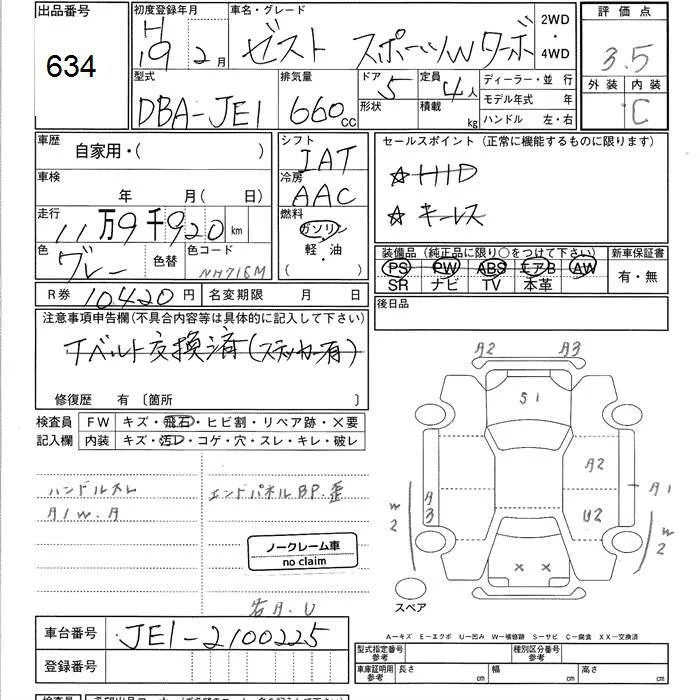 出品番号
634
初度登録年月
H19 2月
車名・グレード
ゼスト スポーツW ターボ
2WD
・
4WD
評価点
3.5
外装 内装
C
型式
DBA-JE1
排気量
660cc
ドア 5
形状
定員 4人
積載 kg
ディーラー・並 行
モデル年式 年
ハンドル 左・右
車歴
自家用・( )
車検
年 月( 日)
走行
11万9千920km
色
グレー
色替
色コード
NH716M
シフト
IAT
冷房
AAC
燃料
ガソリン
軽・油
( )
セールスポイント (正常に機能するものに限ります)
☆HID
☆キーレス
装備品 (純正品に限り○をつけて下さい)
PS PW ABS エアB AW
SR ナビ TV 本革
新車保証書
有・無
後日品
R券 10420円
名変期限 月 日
注意事項申告欄(不具合内容等は具体的に記入して下さい)
Tベルト交換済(ステッカー有)
修復歴 有 〔箇所 〕
検査員 FW キズ・飛石・ヒビ割・リペア跡・×要
記入欄 内装 キズ・汚レ・コゲ・穴・スレ・キレ・破レ
ハンドルスレ
A/W.A
エンドパネルBP.歪
ノークレーム車
no claim
A2 A3
S1
A2
A3
U2
A1
W2
W2
× ×
スペア
A−キズ E−エクボ U−凹み W−補修跡 S−サビ C−腐食 XX−交換済
車台番号
JE1-2100225
登録番号
型式指定番号
参考
種別区分番号
参考
車庫証明用
参考
長さ cm
幅 cm
高さ cm